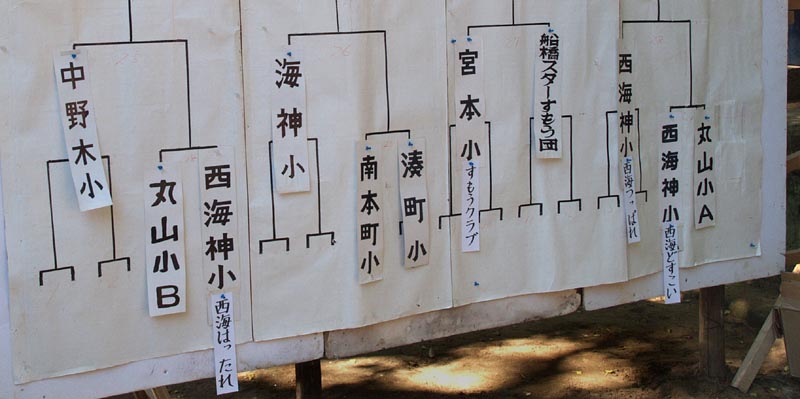 中野木小
丸山小B
西海神小
西海はったれ
海神小
南本町小
湊町小
宮本小
すもうクラブ
船橋スターすもう団
西海神小
西海つっぱれ
西海神小
西海どすこい
丸山小A